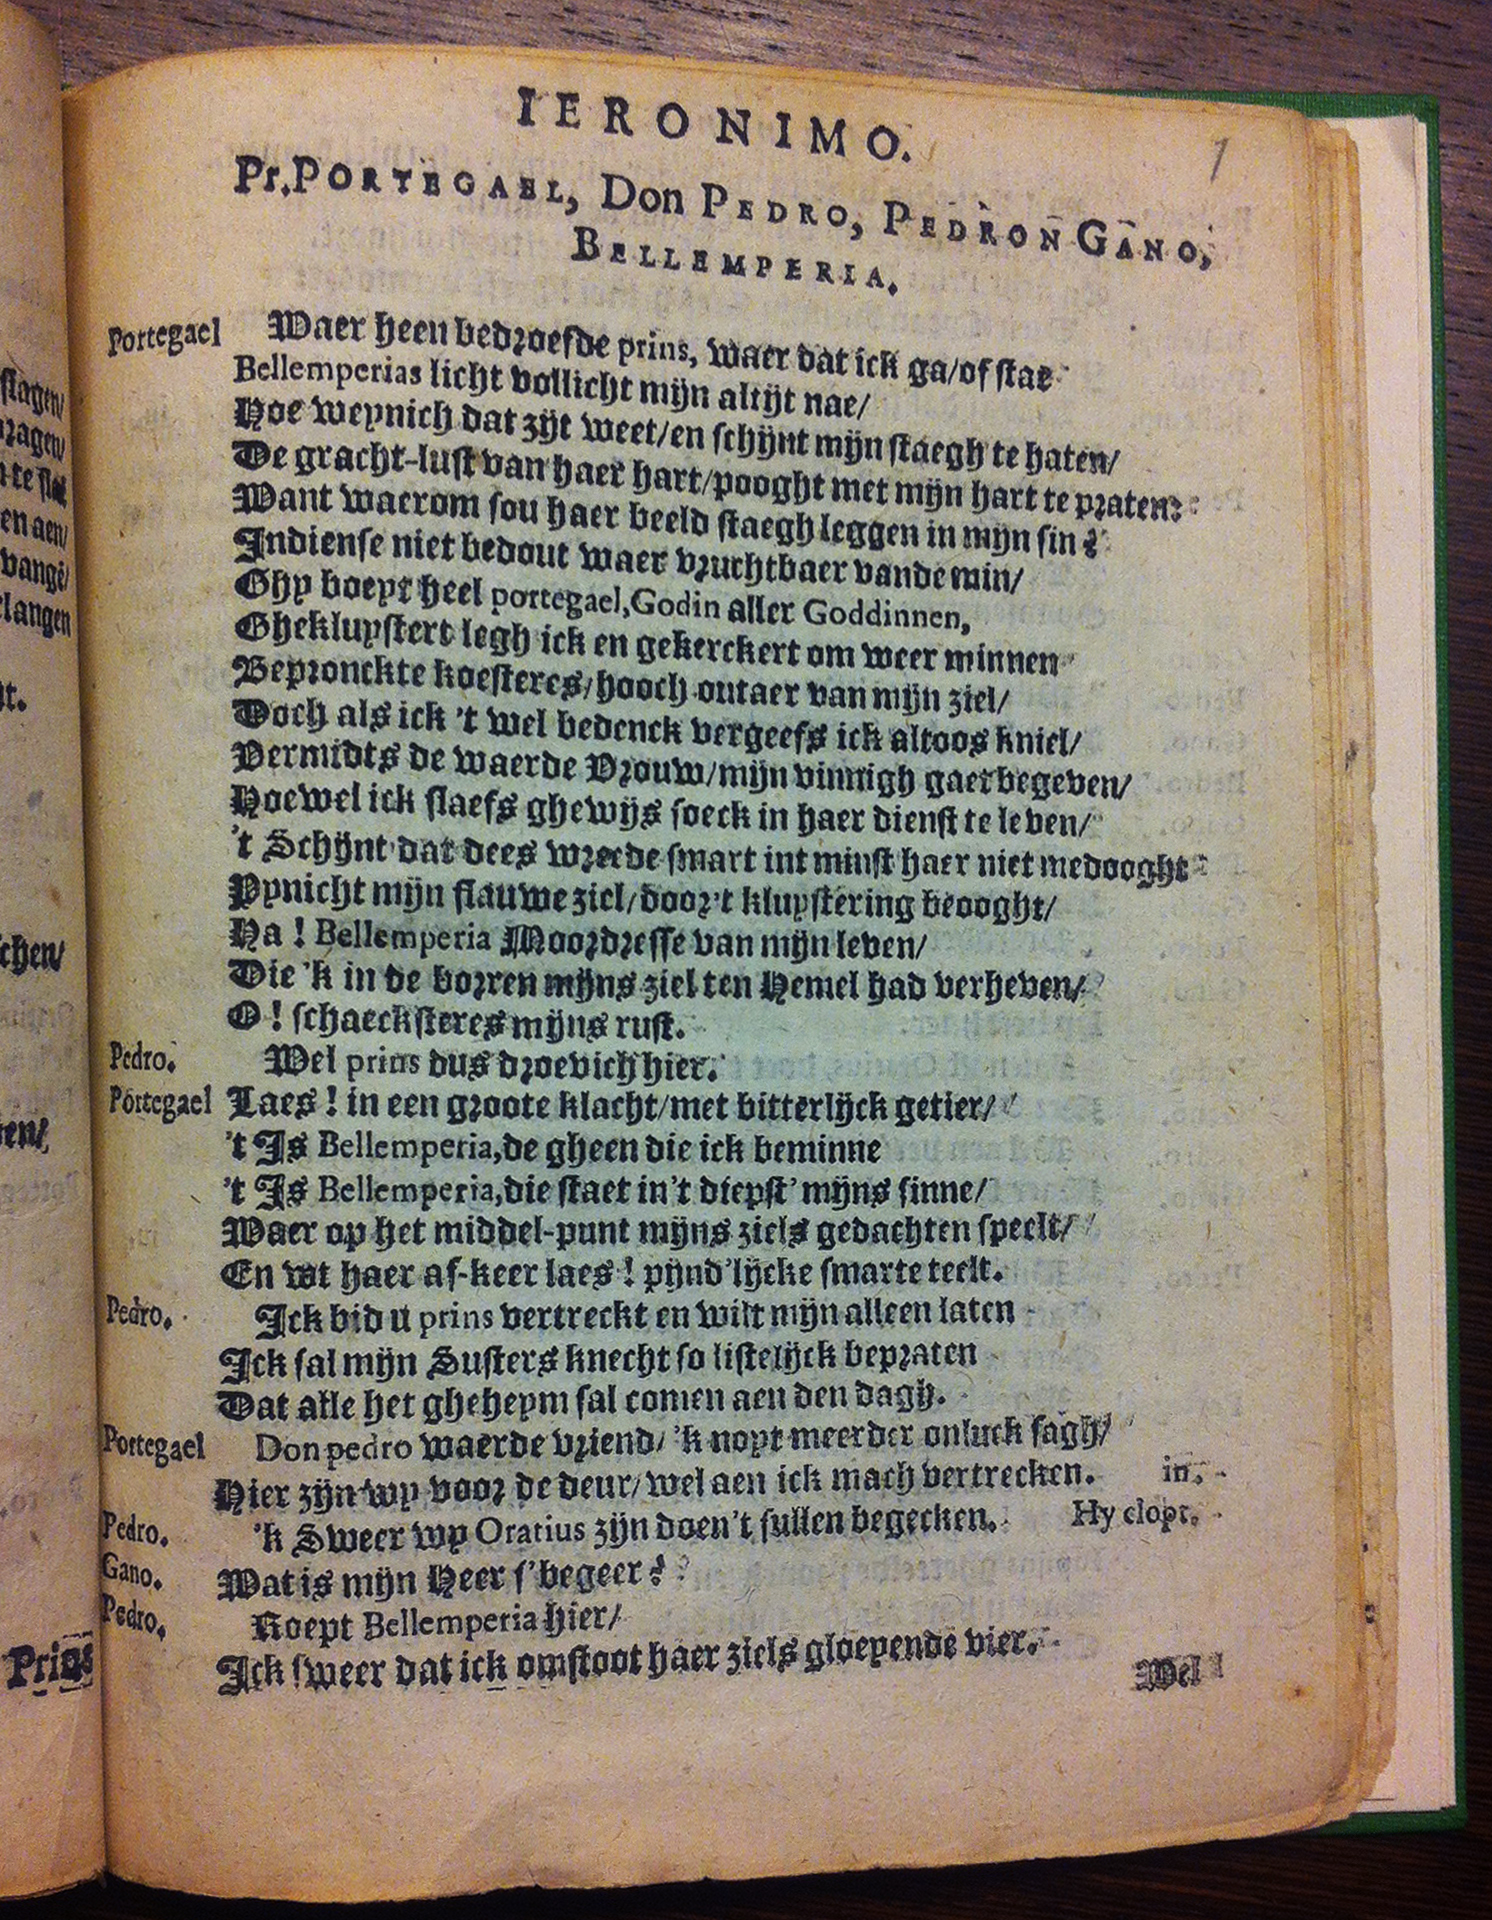 IERONIMO.
1
Pr. PORTEGAEL, Don PEDRO, PEDRON GANO,
BELLEMPERIA.
Portegael Waer heen bedroefde prins, waer dat ick ga/of stae
Bellemperias licht vollicht mijn altijt nae/
Hoe weynich dat zijt weet/en schijnt mijn staegh te haten/
De gracht-lust van haer hart/pooght met mijn hart te praten:
Want waerom sou haer beeld staegh leggen in mijn sin?
Indiense niet bedout waer vruchtbaer vande min/
Ghy boeyt heel portegael, Godin aller Goddinnen,
Ghekluystert legh ick en gekerckert om weer minnen
Bepronckte koesteres/hooch outaer van mijn ziel/
Doch als ick 't wel bedenck vergeefs ick altoos kniel/
Vermidts de waerde Vrouw/mijn vinnigh gaet begeven/
Hoewel ick slaefs ghewijs soeck in haer dienst te leven/
't Schijnt dat dees wreede smart int minst haer niet medooght
Pynicht mijn flauwe ziel/door't kluystering beooght/
Ha! Bellemperia Moordresse van mijn leven/
Die 'k in de borren mijns ziel ten Hemel had verheven/
O! schaecksteres mijns rust.
Pedro. Wel prins dus droevich hier.
Portegael Laes! in een groote klacht/met bitterlijck getier/
't Is Bellemperia, de gheen die ick beminne
't Is Bellemperia, die staet in't diepst' mijns sinne/
Waer op het middel-punt mijns ziels gedachten speelt/
En wt haer af-keer laes! pijnd'lijcke smarte teelt.
Pedro. Ick bid u prins vertreckt en wilt mijn alleen laten
Ick sal mijn Susters knecht so listelijck bepraten
Dat alle het gheheym sal comen aen den dagh.
Portegael Don pedro waerde vriend/ 'k noyt meerder onluck sagh/
Hier zijn wy voor de deur/wel aen ick mach vertrecken. in.
Pedro. 'k Sweer wy Oratius zijn doen't sullen begecken. Hy clopt.
Gano. Wat is mijn Heer s'begeer?
Pedro. Roept Bellemperia hier/
Ick sweer dat ick omstoot haer ziels gloeyende vier.
Wel
slagen/
ragen/
te sla
en aen/
vangē/
langen
ht.
chen/
ten/
Prins